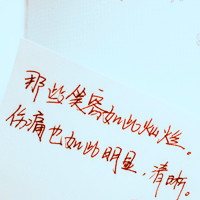 那些笑容如此灿烂。
伤痛也如此明显,清晰。